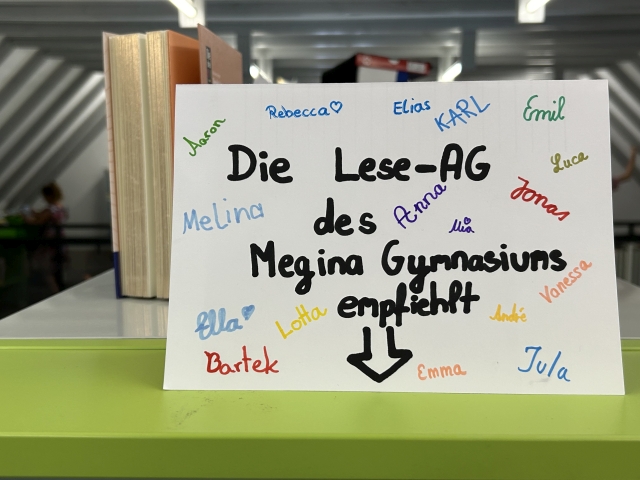 Rebecca♡ Elias KARL Emil
Aaron
Die Lese-AG
Luca
Melina des Anna Mia Jonas
Megina Gymnasiums
Vanessa
empfiehlt
Ella Lotta André
Bartek Emma Jula